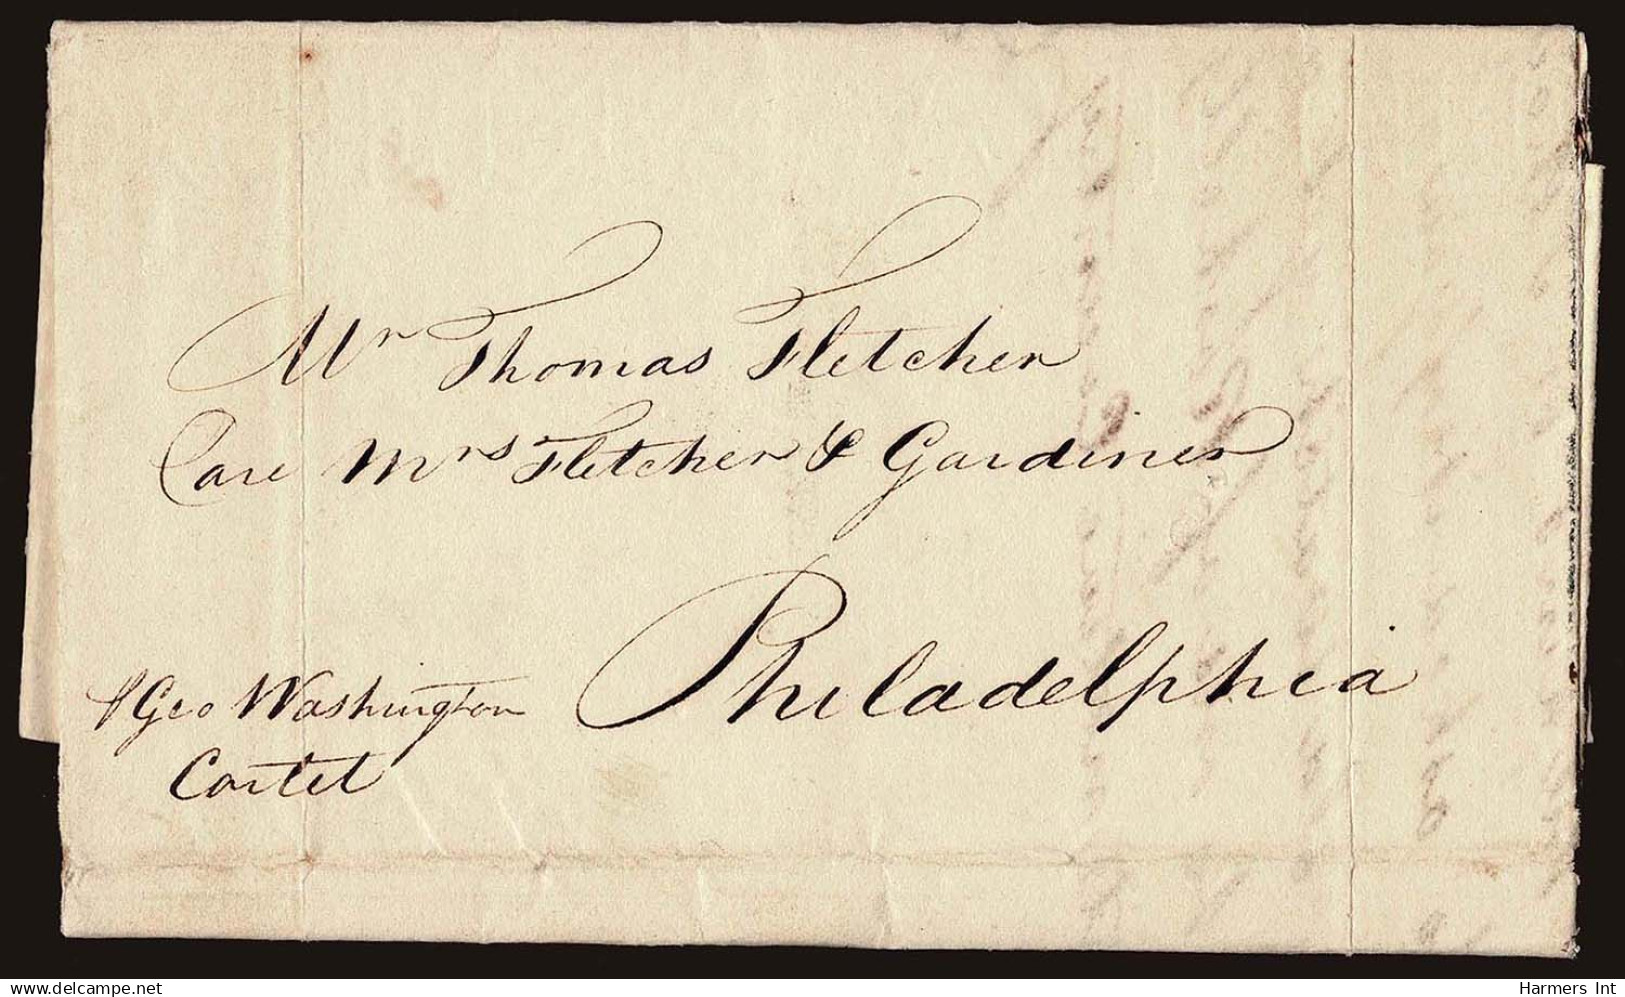 Mr Thomas Fletcher
Care Mrs Fletcher & Gardiner
Philadelphia
⅌ Geo Washington
Cartel
www.delcampe.net
Harmers Int